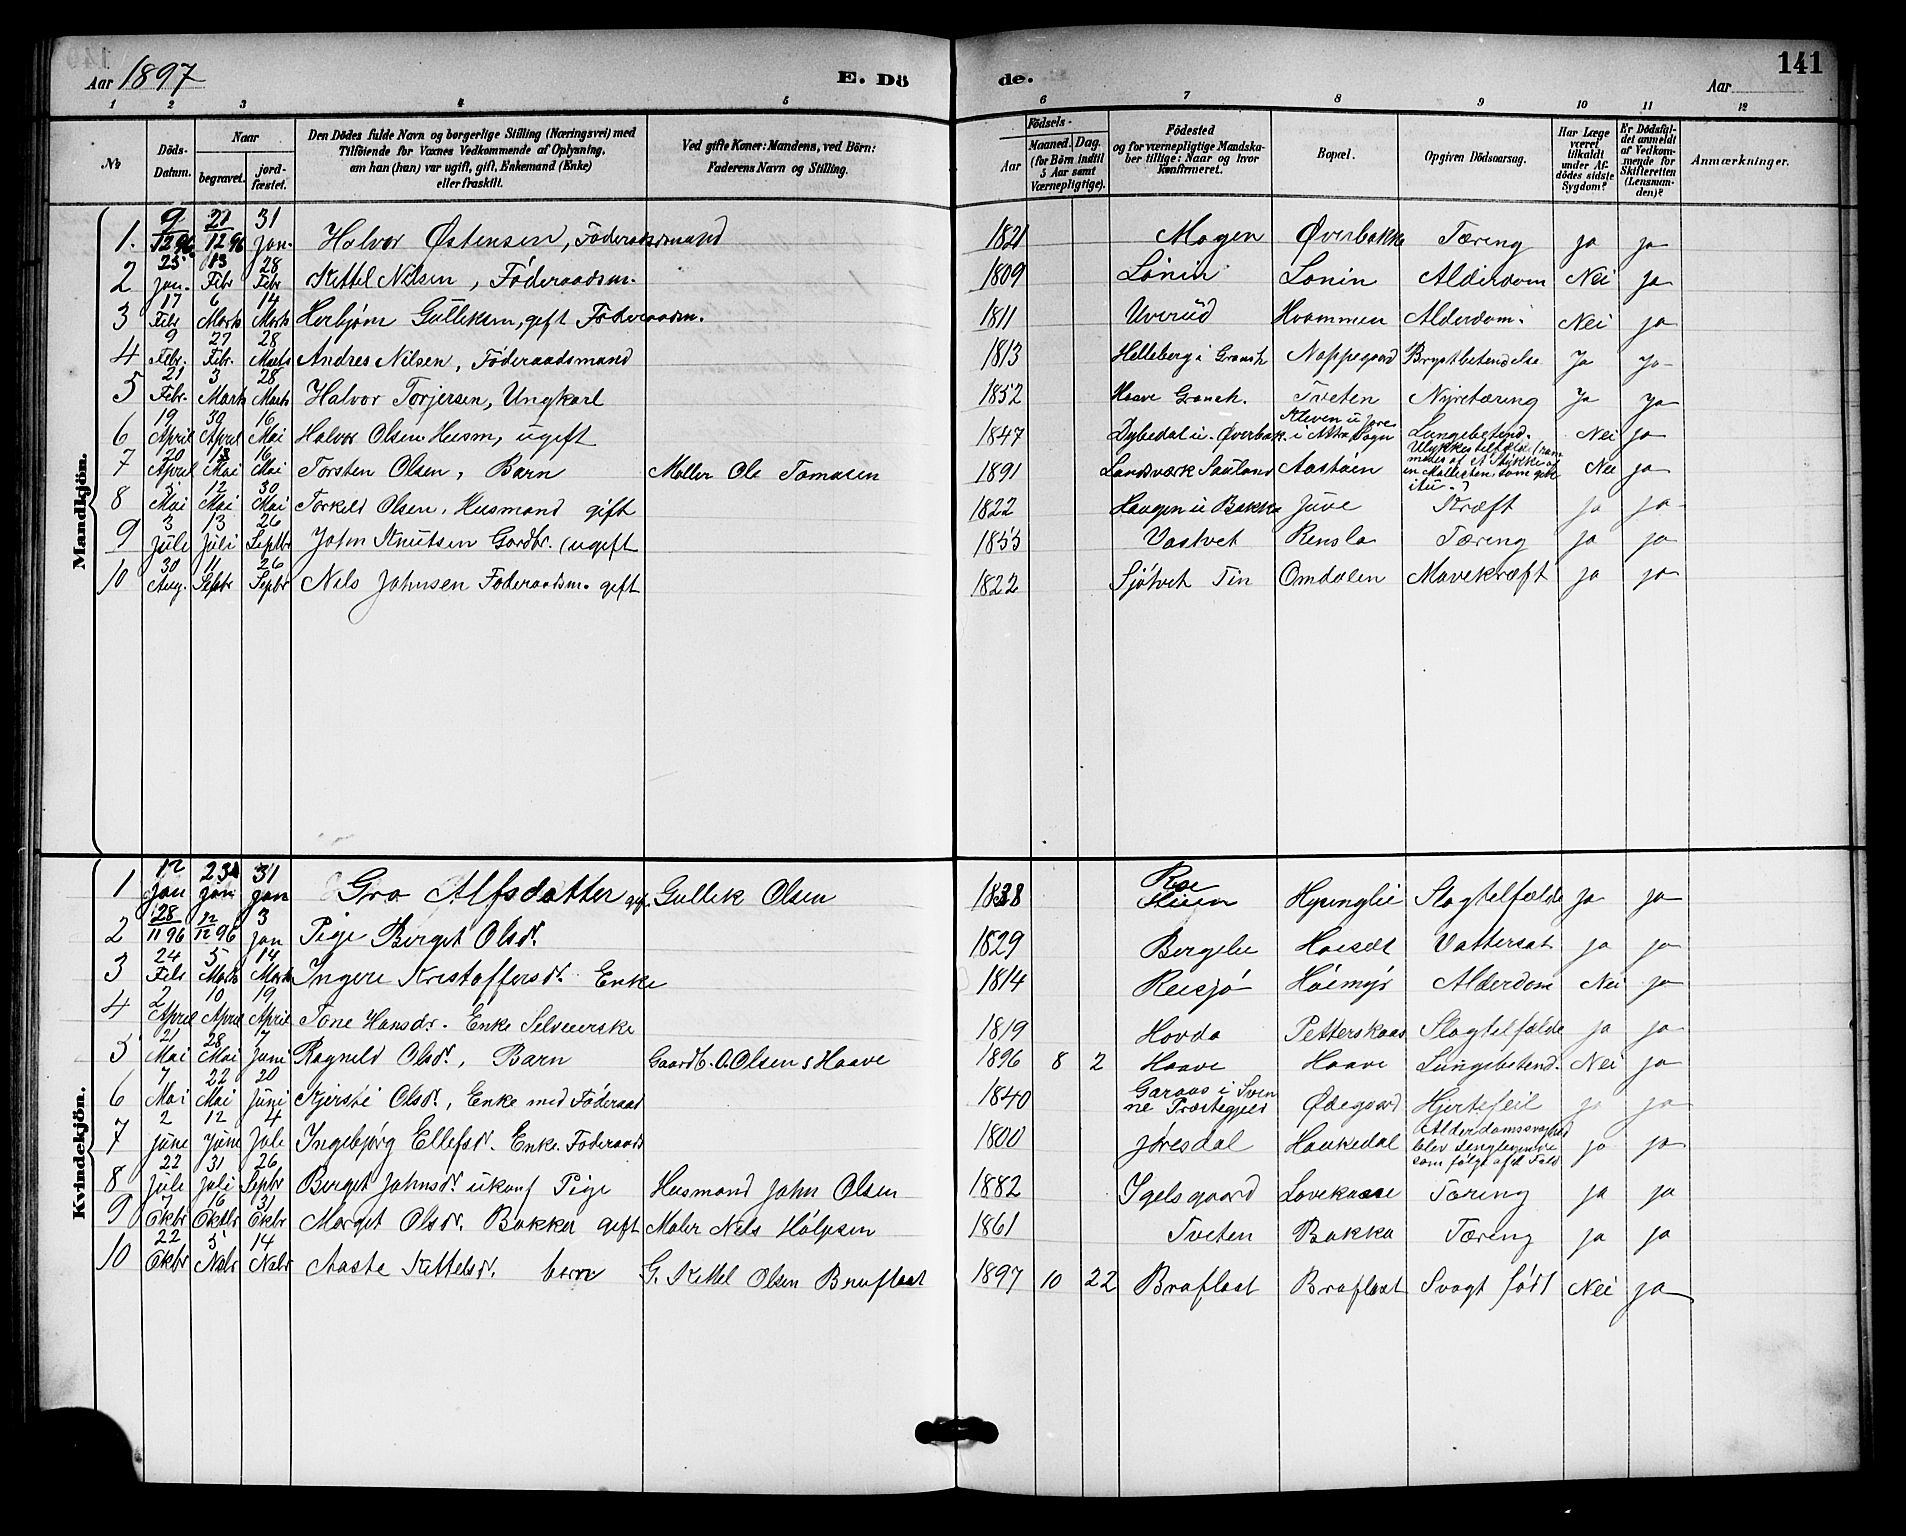 Aar 1897 E. Dö de. Aar 141
1 2 3 4 5 6 7 8 9 10 11 12
No Döds-Datum. Naar begravet. jord-fæstet. Den Dödes fulde Navn og borgerlige Stilling (Næringsvei) med Tilföiende for Voxnes Vedkommende af Oplysning, om han (hun) var ugift, gift, Enkemand (Enke) eller fraskilt. Ved gifte Koner: Mandens, ved Börn: Faderens Navn og Stilling. Födsels- Aar Maaned. Dag. (for Börn indtil 5 Aar samt Værnepligtige). Födested og for værnepligtige Mandskaber tillige: Naar og hvor konfirmeret. Bopæl. Opgiven Dödsaarsag. Har Læge været tilkaldt under Afdödes sidste Sygdom? Er Dödsfaldet anmeldt af Vedkommende for Skifteretten (Lensmanden)? Anmærkninger.
Mandkjön.
1. 9/12 96 21/12 96 31 Jan. Halvor Østensen, Föderaadsmand 1821 Mogen Øverbakke Tæring ja ja
2 25 Jan. 13 Febr 28 Febr Kittel Nilsen, Föderaadsm. 1809 Lönin Lonin Alderdom Nei ja
3 17 Febr 6 Marts 14 Marts Herbjørn Gulliksen, gift Föderaadsm. 1811 Uverud Hvammen Alderdom. Nei ja
4 9 Febr. 27 Febr. 28 Marts Andres Nilsen, Föderaadsmand 1813 Helleberg i Gransh Noppegaard Brystbetendelse Ja ja
5 21 Febr. 3 Marts 28 Marts Halvor Torjersen, Ungkarl 1852 Haave Gransh. Tveten Nyretæring Ja ja
6 19 April 30 April 16 Mai Halvor Olsen Husm, ugift 1847 Dybedal u. Øverbak. Kleven u Jore i Attra Sogn Lungebetend. Nei ja
7 20 April 18 Mai 16 Mai Torsten Olsen, Barn Møller Ole Tomasen 1891 Landsværk Sauland Aastöen Ulykkestilfælde (rammedes af et Stykke af en Møllesten, som gik itu.) Nei ja
8 5 Mai 12 Mai 30 Mai Torkeld Olsen, Husmand gift 1822 Haugen u Bakka Juve Kræft ja ja
9 3 Juli 13 Juli 26 Septbr John Knutsen Gardbr. (ugift 1855 Vastvet Rensla Tæring ja ja
10 30 Aug. 11 Septbr 26 Septbr Nils Johnsen Föderaadsm. gift 1822 Sjötvet Tin Omdalen Mavekræft ja ja
Kvindekjön.
1 12 Jan 23 Jan 31 Jan Gro Alfsdatter gift. Gullik Olsen 1838 Roe Stien Hysinglie Slagtilfælde ja ja
2 28/11 96 12/12 96 3 Jan Pige Berget Olsdr. 1829 Bergelie Hoisæt Vattersot ja ja
3 24 Febr 5 Marts 14 Marts Ingeri Kristoffersdr. Enke 1814 Reisjö Höimyr Alderdom Nei ja
4 2 April 10 April 19 April Tone Hansdr. Enke Selveierske 1819 Hovda Petterskaas Slagtilfælde ja ja
5 21 Mai 28 Mai 7 Juni Ragnild Olsdr., Barn Gaardb. O. Olsen s Haave 1896 8 2 Haave Haave Lungebetend. Nei ja
6 7 Mai 22 Mai 20 Juni Kjersti Olsdr., Enke med Föderaad 1840 Garaas i Svenne Præstegjeld Ødegaard Hjertefeil ja ja
7 2 Juni 12 Juni 4 Juli Ingebjørg Ellefsdr. Enke. Föderaads 1800 Jøresdal Haukedal Alderdomssvaghed blev sengliggende som fölge af et Fald ja ja
8 22 Juli 31 Juli 26 Septbr Berget Johnsdr. ukonf Pige Husmand John Olsen 1882 Igelsgaard Lovekaase Tæring ja ja
9 7 Oktbr 16 Oktbr 31 Oktbr Margit Olsdr. Bakka gift Maler Nils Höljesen 1861 Tveten Bakka Tæring ja ja
10 22 Oktbr 5 Novbr 14 Novbr Aaste Kittelsdr. barn G. Kittel Olsen Braflaat 1897 10 22 Braflaat Braflaat Svagt född Nei ja